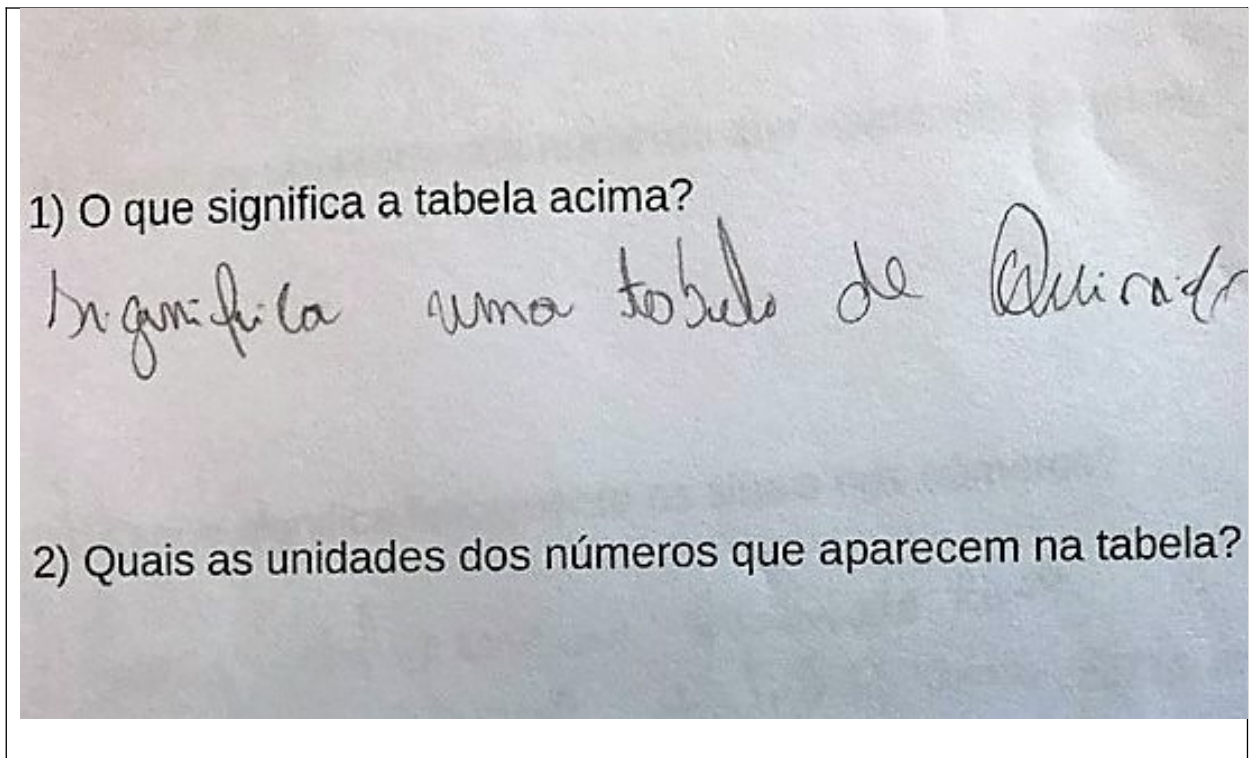 1) O que significa a tabela acima?
significa uma tabela de
2) Quais as unidades dos números que aparecem na tabela?